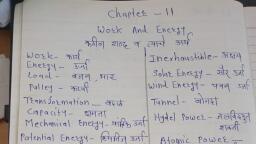 Chapter - 11
Work And Energy
कठीण शब्द व त्याचे अर्थ
Work - कार्य
Energy - ऊर्जा
Load - वजन, भार
Pulley - कप्पी
Transformation - बदल
Capacity - क्षमता
Mechanical Energy - यांत्रिक ऊर्जा
Potential Energy - स्थितिज ऊर्जा
Inexhaustible - अक्षय
Solar Energy - सौर ऊर्जा
Wind Energy - पवन ऊर्जा
Tunnel - बोगदा
Hydel Power - जलविद्युत शक्ती
Atomic Power -